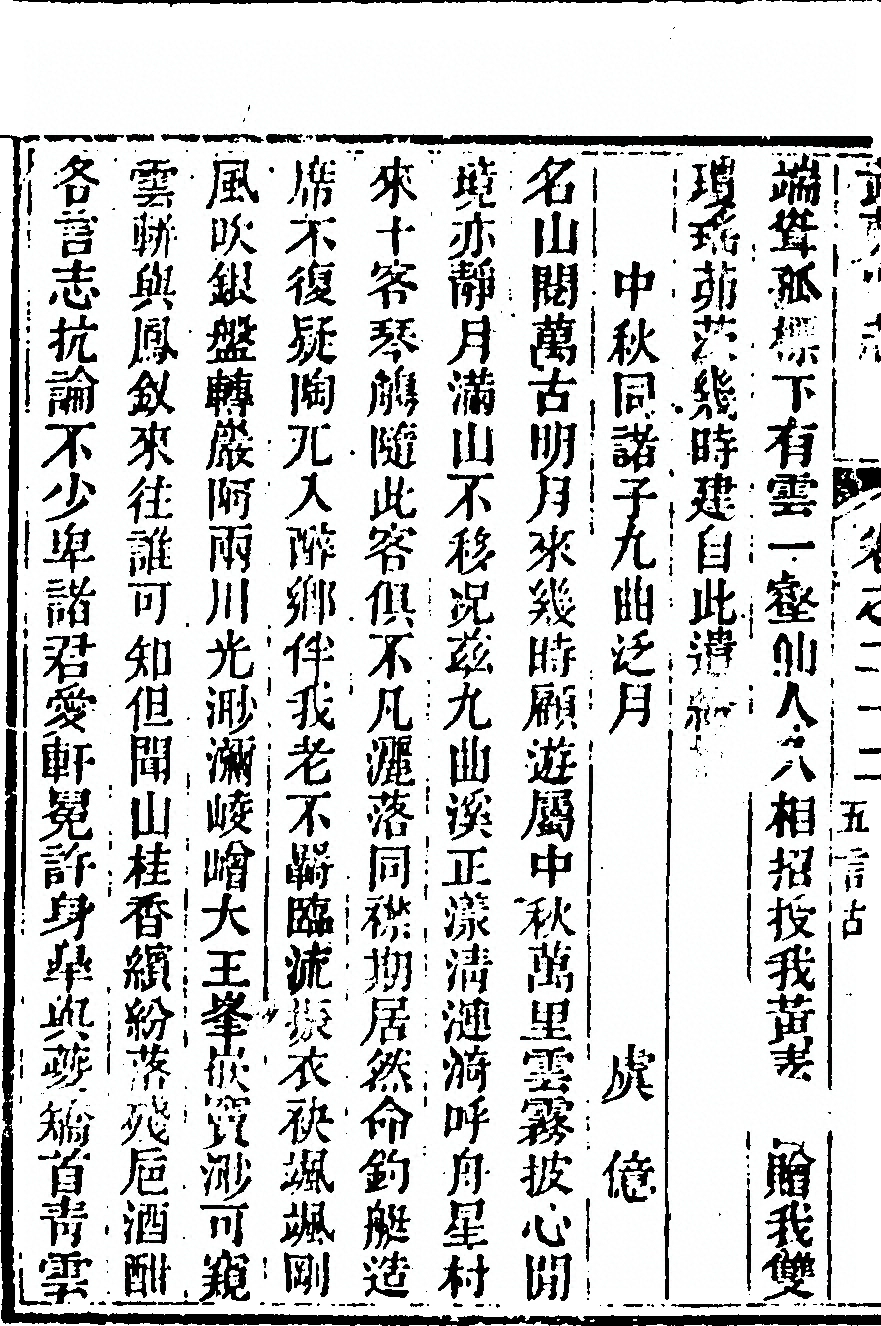 卷之二十二 五言古
端聳孤標下有雲一壑仙人六八相招授我黃 贈我雙
瓊瑤茆茨幾時建自此遺
中秋同諸子九曲泛月 虞億
名山閱萬古明月來幾時願遊屬中秋萬里雲霧披心閒
境亦靜月滿山不移况茲九曲溪正漾清漣漪呼舟星村
來十客琴觴隨此客俱不凡灑落同襟期居然命釣艇造
席不復疑陶兀入醉鄉伴我老不羈臨流振衣袂颯颯剛
風吹銀盤轉巖阿兩川光渺瀰崚嶒大王峯嵌竇渺可窺
雲輧與鳳釵來往誰可知但聞山桂香繽紛落殘巵酒酣
各言志抗論不少卑諸君愛軒冕許身華與夔矯首靑雲